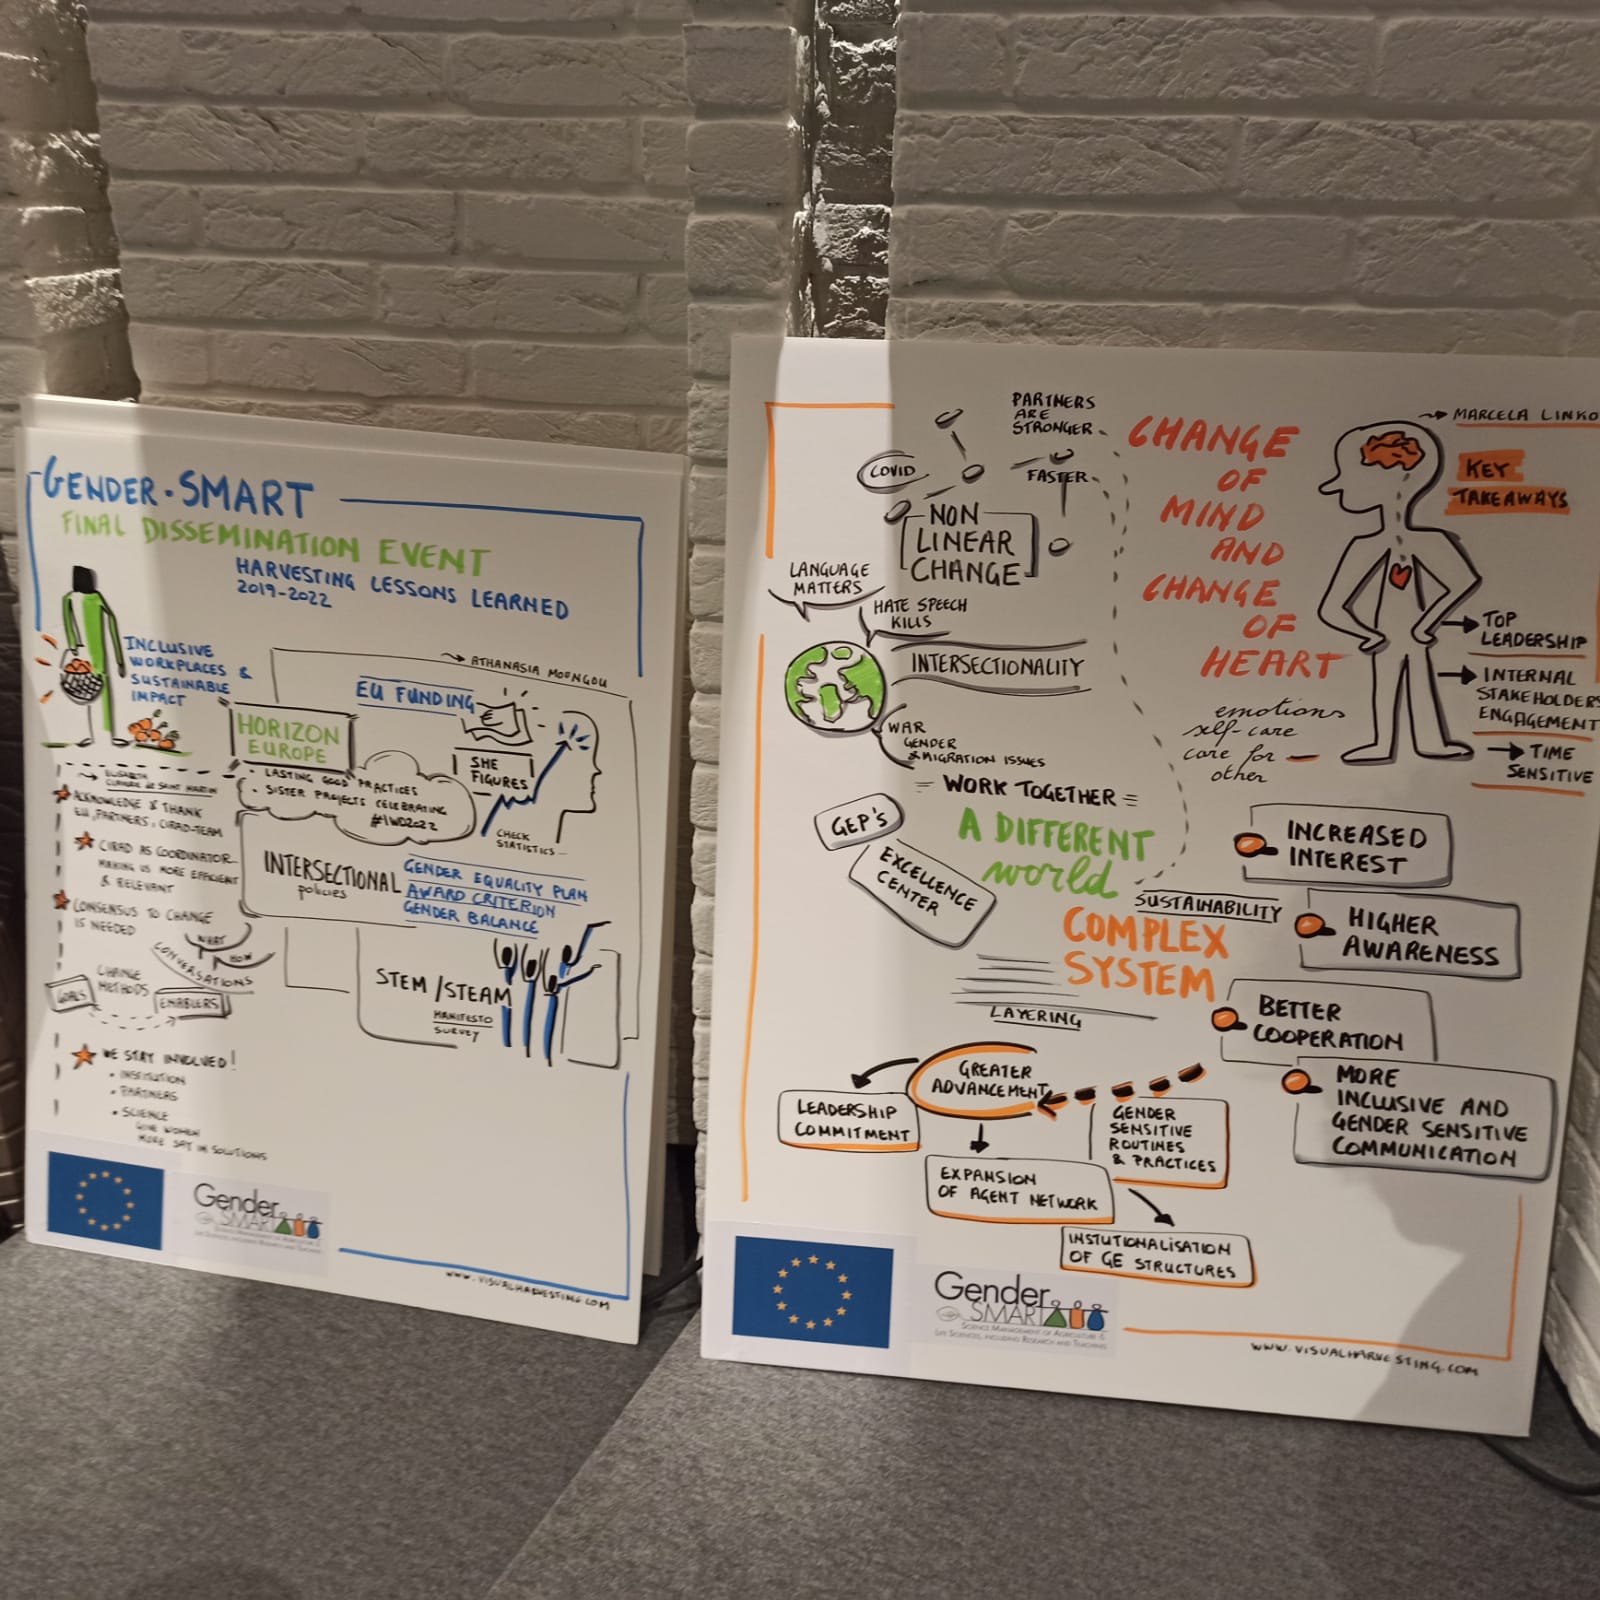 GENDER·SMART
FINAL DISSEMINATION EVENT
HARVESTING LESSONS LEARNED
2019-2022
INCLUSIVE
WORKPLACES &
SUSTAINABLE
IMPACT
ATHANASIA MOUNGOU
EU FUNDING
HORIZON
EUROPE
SHE
FIGURES
• LASTING GOOD PRACTICES
• SISTER PROJECTS CELEBRATING
#IWD2022
CHECK
STATISTICS...
ELISABETH
DE SAINT MARTIN
ACKNOWLEDGE & THANK
EU, PARTNERS, CIRAD-TEAM
CIRAD AS COORDINATOR
MAKING US MORE EFFICIENT
& RELEVANT
CONSENSUS TO CHANGE
IS NEEDED
WHAT
HOW
CONVERSATIONS
CHANGE
METHODS
GOALS
ENABLERS
WE STAY INVOLVED!
• INSTITUTION
• PARTNERS
• SCIENCE
GIVE WOMEN
MORE SAY IN SOLUTIONS
INTERSECTIONAL
policies
GENDER EQUALITY PLAN
AWARD CRITERION
GENDER BALANCE
STEM/STEAM
MANIFESTO
SURVEY
Gender
SMART
WWW.VISUALHARVESTING.COM
PARTNERS
ARE
STRONGER
FASTER
COVID
NON
LINEAR
CHANGE
LANGUAGE
MATTERS
HATE SPEECH
KILLS
INTERSECTIONALITY
WAR
GENDER
& MIGRATION ISSUES
= WORK TOGETHER =
A DIFFERENT
world
GEP'S
EXCELLENCE
CENTER
SUSTAINABILITY
COMPLEX
SYSTEM
LAYERING
CHANGE
OF
MIND
AND
CHANGE
OF
HEART
emotions
self-care
care for
other
MARCELA LINKO
KEY
TAKEAWAYS
TOP
LEADERSHIP
INTERNAL
STAKEHOLDERS
ENGAGEMENT
TIME
SENSITIVE
INCREASED
INTEREST
HIGHER
AWARENESS
BETTER
COOPERATION
MORE
INCLUSIVE AND
GENDER SENSITIVE
COMMUNICATION
GREATER
ADVANCEMENT
LEADERSHIP
COMMITMENT
EXPANSION
OF AGENT NETWORK
GENDER
SENSITIVE
ROUTINES
& PRACTICES
INSTUTIONALISATION
OF GE STRUCTURES
Gender
SMART
SCIENCE MANAGEMENT OF AGRICULTURE &
LIFE SCIENCES, INCLUDING RESEARCH AND TEACHING
WWW.VISUALHARVESTING.COM